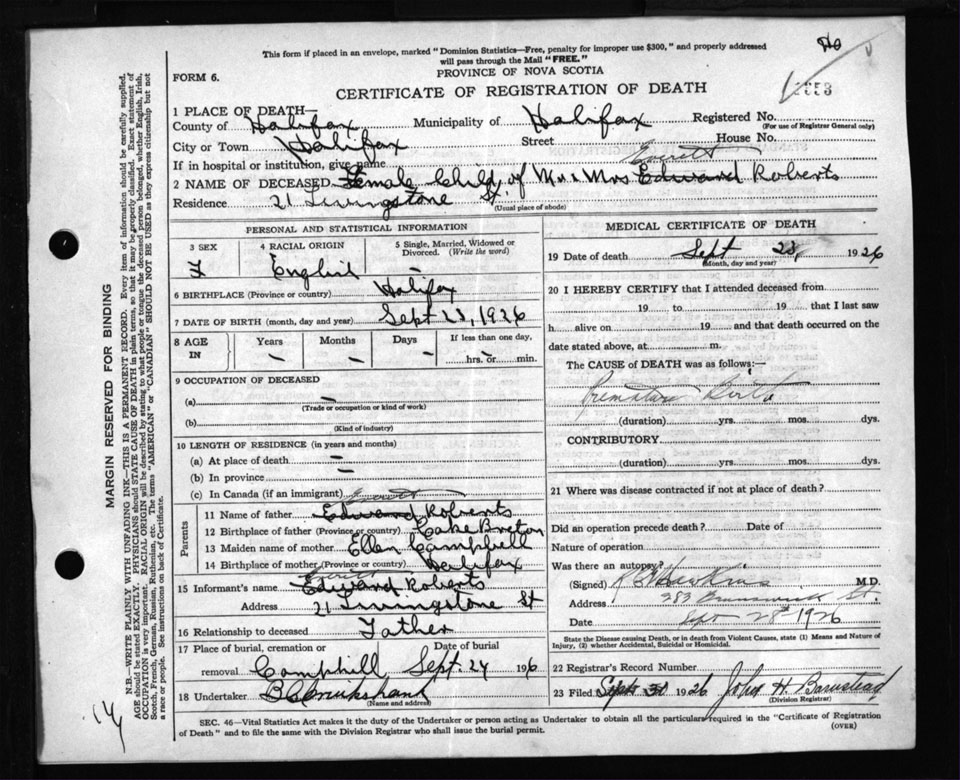 This form if placed in an envelope, marked "Dominion Statistics—Free, penalty for improper use $300," and properly addressed
will pass through the Mail "FREE."
FORM 6.
PROVINCE OF NOVA SCOTIA
CERTIFICATE OF REGISTRATION OF DEATH
1 PLACE OF DEATH—
County of Halifax Municipality of Halifax Registered No.
(For use of Registrar General only)
City or Town Halifax Street House No.
If in hospital or institution, give name
Everett
2 NAME OF DECEASED Female Child of Mr & Mrs Edward Roberts
Residence 21 Livingstone St.
(Usual place of abode)
PERSONAL AND STATISTICAL INFORMATION
3 SEX 4 RACIAL ORIGIN 5 Single, Married, Widowed or Divorced. (Write the word)
F English —
6 BIRTHPLACE (Province or country) Halifax
7 DATE OF BIRTH (month, day and year) Sept 23, 1926
8 AGE IN Years Months Days If less than one day,
— — — hrs. or min.
9 OCCUPATION OF DECEASED
(a) —
(Trade or occupation or kind of work)
(b)
(Kind of industry)
10 LENGTH OF RESIDENCE (in years and months)
(a) At place of death —
(b) In province —
(c) In Canada (if an immigrant)
Everett
Parents
11 Name of father Edward Roberts
12 Birthplace of father (Province or country) Cape Breton
13 Maiden name of mother Ellen Campbell
14 Birthplace of mother (Province or country) Halifax
Everett
15 Informant's name Edward Roberts
Address 21 Livingstone St
16 Relationship to deceased Father
17 Place of burial, cremation or Date of burial
removal Camphill Sept. 24 1926
18 Undertaker
(Name and address)
MEDICAL CERTIFICATE OF DEATH
19 Date of death Sept 23, 1926
(Month, day and year)
20 I HEREBY CERTIFY that I attended deceased from
19 to 19 that I last saw
h alive on 19 and that death occurred on the
date stated above, at m.
The CAUSE OF DEATH was as follows:—
Premature Birth
(duration) yrs. mos. dys.
CONTRIBUTORY
(duration) yrs. mos. dys.
21 Where was disease contracted if not at place of death?
Did an operation precede death? Date of
Nature of operation
Was there an autopsy?
(Signed) Hawkins M.D.
Address 283 Brunswick St.
Date Sept 28th 1926
State the Disease causing Death, or in death from Violent Causes, state (1) Means and Nature of
Injury, (2) whether Accidental, Suicidal or Homicidal.
22 Registrar's Record Number
23 Filed Sept 1926 John H. Barnstead
(Division Registrar)
SEC. 46—Vital Statistics Act makes it the duty of the Undertaker or person acting as Undertaker to obtain all the particulars required in the "Certificate of Registration
of Death" and to file the same with the Division Registrar who shall issue the burial permit.
(OVER)
MARGIN RESERVED FOR BINDING
N.B.—WRITE PLAINLY WITH UNFADING INK—THIS IS A PERMANENT RECORD. Every item of information should be carefully supplied.
AGE should be stated EXACTLY. PHYSICIANS should STATE CAUSE OF DEATH in plain terms, so that it may be properly classified. Exact statement of
OCCUPATION is very important. RACIAL ORIGIN will be described by stating to what people or tongue the deceased person belonged, whether English, Irish,
Scotch, French, German, Russian, Ruthenian, etc. The terms "AMERICAN" or "CANADIAN" SHOULD NOT BE USED as they express citizenship but not
a race or people. See instructions on back of Certificate.